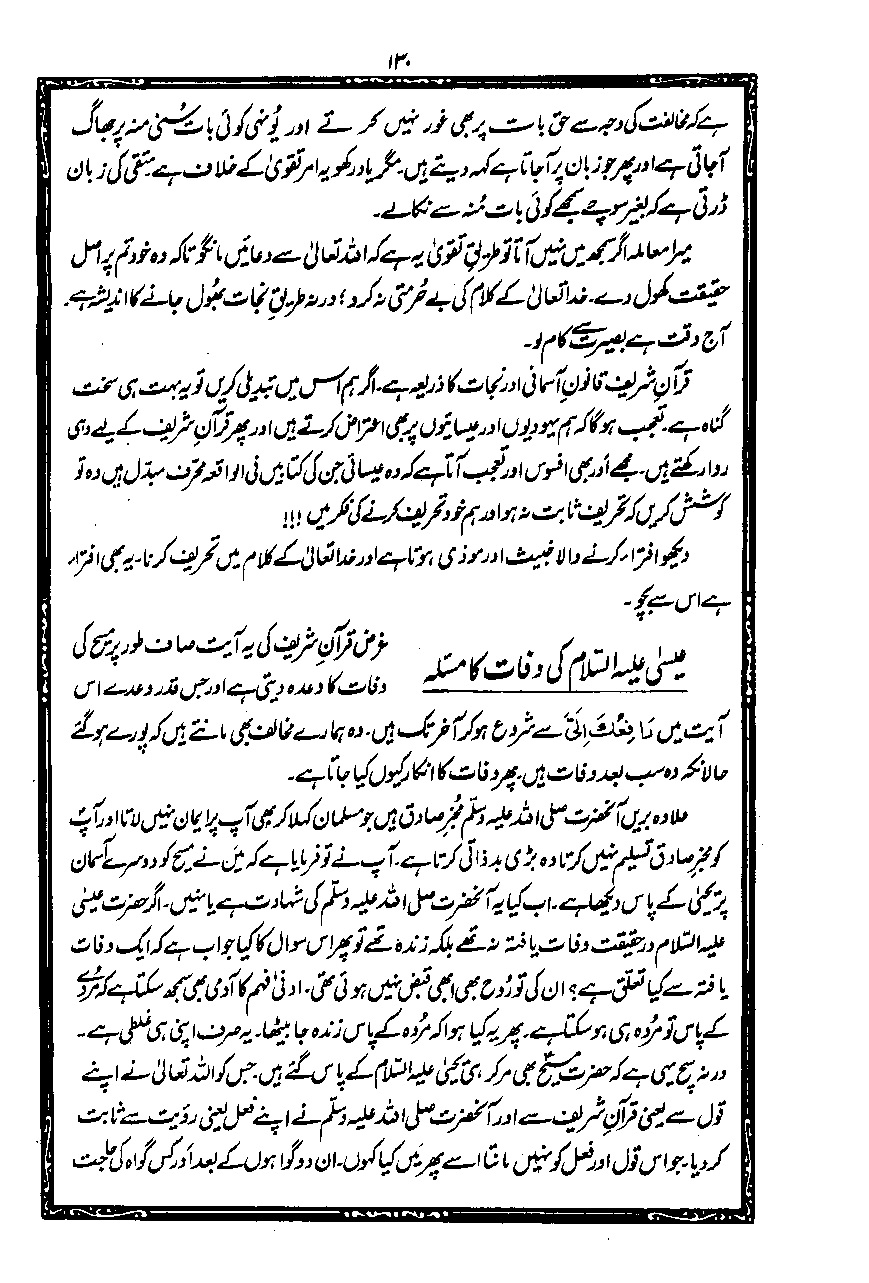 ۱۳۰
ہے کہ مخالفت کی وجہ سے حق بات پر بھی غور نہیں کرتے اور یُونہی کوئی بات سُنی منہ پر جھاگ
آجاتی ہے اور پھر جو زبان پر آجاتا ہے کہہ دیتے ہیں۔ مگر یاد رکھو یہ امر تقویٰ کے خلاف ہے متقی کی زبان
ڈرتی ہے کہ بغیر سوچے سمجھے کوئی بات مُنہ سے نکالے۔
میرا معاملہ اگر سمجھ میں نہیں آتا تو طریقِ تقویٰ یہ ہے کہ اللہ تعالیٰ سے دعائیں مانگو تاکہ وہ خود تم پر اصل
حقیقت کھول دے۔ خدا تعالیٰ کے کلام کی بے حُرمتی نہ کرو؛ ورنہ طریقِ نجات بھُول جانے کا اندیشہ ہے۔
آج وقت ہے بصیرت سے کام لو۔
قرآنِ شریف قانونِ آسمانی اور نجات کا ذریعہ ہے۔ اگر ہم اس میں تبدیلی کریں تو یہ بہت ہی سخت
گناہ ہے۔ تعجب ہوگا کہ ہم یہودیوں اور عیسائیوں پر بھی اعتراض کرتے ہیں اور پھر قرآنِ شریف کے لیے وہی
روا رکھتے ہیں۔ مجھے اَور بھی افسوس اور تعجب آتا ہے کہ وہ عیسائی جن کی کتابیں فی الواقعہ محرّف مبدّل ہیں وہ تو
کوشش کریں کہ تحریف ثابت نہ ہو اور ہم خود تحریف کرنے کی فکر میں !!!
دیکھو افتراء کرنے والا خبیث اور موذی ہوتا ہے اور خدا تعالیٰ کے کلام میں تحریف کرنا۔ یہ بھی افتراء
ہے اس سے بچو۔
عیسیٰ علیہ السّلام کی وفات کا مسئلہ
غرض قرآنِ شریف کی یہ آیت صاف طور پر مسیح کی
وفات کا وعدہ دیتی ہے اور جس قدر وعدے اس
آیت میں رَافِعُكَ اِلَیَّ سے شروع ہو کر آخر تک ہیں۔ وہ ہمارے مخالف بھی مانتے ہیں کہ پورے ہو گئے
حالانکہ وہ سب بعد وفات ہیں۔ پھر وفات کا انکار کیوں کیا جاتا ہے۔
علاوہ بریں آنحضرت صلی اللہ علیہ وسلّم مخبرِ صادق ہیں جو مسلمان کہلا کر بھی آپ پر ایمان نہیں لاتا اور آپؐ
کو مخبرِ صادق تسلیم نہیں کرتا وہ بڑی بدذاتی کرتا ہے۔ آپ نے تو فرمایا ہے کہ مَیں نے مسیح کو دوسرے آسمان
پر یحییٰ کے پاس دیکھا ہے۔ اب کیا یہ آنحضرت صلی اللہ علیہ وسلّم کی شہادت ہے یا نہیں۔ اگر حضرت عیسیٰ
علیہ السّلام درحقیقت وفات یافتہ نہ تھے بلکہ زندہ تھے تو پھر اس سوال کا کیا جواب ہے کہ ایک وفات
یافتہ سے کیا تعلق ہے؟ ان کی تو رُوح بھی ابھی قبض نہیں ہوئی تھی۔ ادنیٰ فہم کا آدمی بھی سمجھ سکتا ہے کہ مُردے
کے پاس تو مُردہ ہی ہو سکتا ہے۔ پھر یہ کیا ہوا کہ مُردہ کے پاس زندہ جا بیٹھا۔ یہ صرف اپنی ہی غلطی ہے۔
ورنہ سچ یہی ہے کہ حضرت مسیح بھی مر کر ہی یحییٰ علیہ السّلام کے پاس گئے ہیں۔ جس کو اللہ تعالیٰ نے اپنے
قول سے یعنی قرآنِ شریف سے اور آنحضرت صلی اللہ علیہ وسلّم نے اپنے فعل یعنی رؤیت سے ثابت
کر دیا۔ جو اس قول اور فعل کو نہیں مانتا اسے پھر مَیں کیا کہوں۔ ان دو گواہوں کے بعد اَور کس گواہ کی حاجت